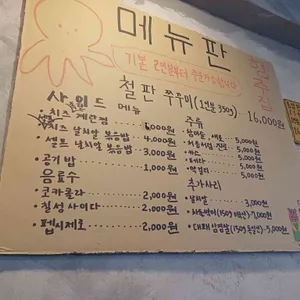 메뉴판
기본 2인분부터 주문가능합니다
철판 쭈꾸미 (1인분 350g) 16,000원
사이드 메뉴
· 치즈 계란찜 6,000원
· 치즈 날치알 볶음밥 4,000원
· 셀프 날치알 볶음밥 3,000원
· 공기밥 1,000원
음료수
· 코카콜라 2,000원
· 칠성사이다 2,000원
· 펩시제로 2,000원
주류
5,000원
5,000원
5,000원
5,000원
· 막걸리 5,000원
추가사리
· 날치알 3,000원
· 차돌박이 (150g 미국산) 7,000원
· 대패삼겹살 (150g 5,000원